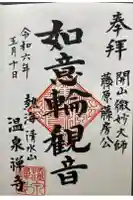 奉拝
開山 微妙大師
藤原藤房公
如意輪観音
令和六年
五月十日
熱海 清水山
温泉禅寺